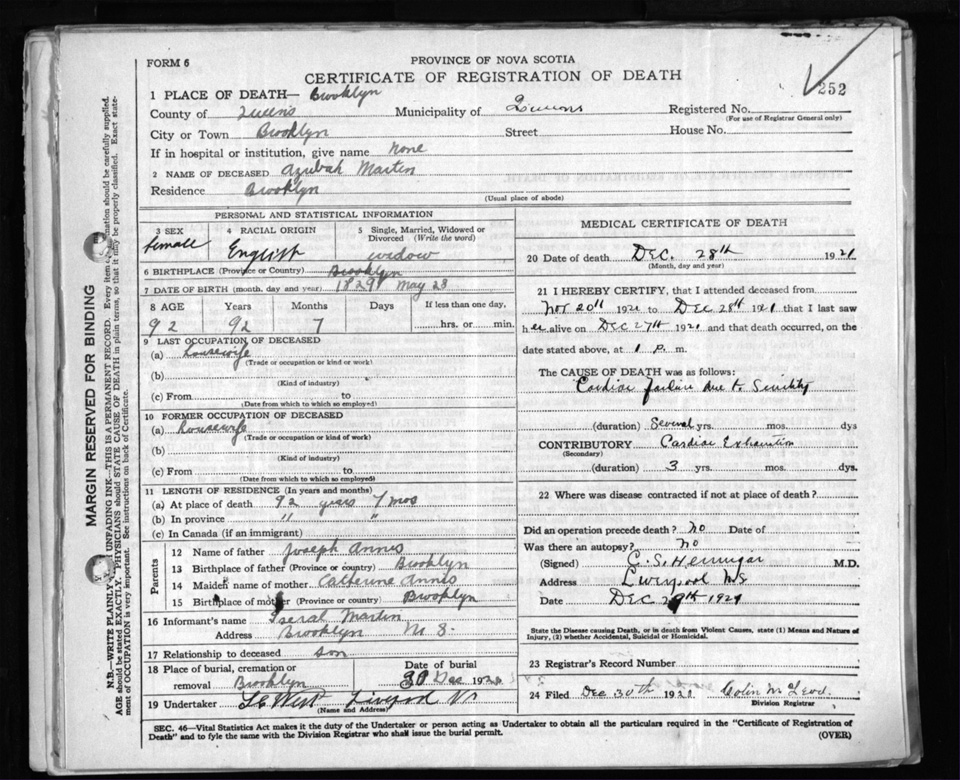 FORM 6
PROVINCE OF NOVA SCOTIA
CERTIFICATE OF REGISTRATION OF DEATH
252
1 PLACE OF DEATH— Brooklyn
County of Queens Municipality of Queens Registered No.
(For use of Registrar General only)
City or Town Brooklyn Street House No.
If in hospital or institution, give name None
2 NAME OF DECEASED Azubah Martin
Residence Brooklyn
(Usual place of abode)
PERSONAL AND STATISTICAL INFORMATION
3 SEX 4 RACIAL ORIGIN 5 Single, Married, Widowed or Divorced (Write the word)
female English widow
6 BIRTHPLACE (Province or Country) Brooklyn
7 DATE OF BIRTH (month, day and year) 1829 May 28
8 AGE Years Months If less than one day,
92 92 7 hrs. or min.
9 LAST OCCUPATION OF DECEASED
(a) housewife
(Trade or occupation or kind of work)
(b)
(Kind of industry)
(c) From to
(Date from which to which so employed)
10 FORMER OCCUPATION OF DECEASED
(a) housewife
(Trade or occupation or kind of work)
(b)
(Kind of industry)
(c) From to
(Date from which to which so employed)
11 LENGTH OF RESIDENCE (In years and months)
(a) At place of death 92 years 7 mos
(b) In province " "
(c) In Canada (if an immigrant)
Parents
12 Name of father Joseph Annis
13 Birthplace of father (Province or country) Brooklyn
14 Maiden name of mother Catherine Annis
15 Birthplace of mother (Province or country) Brooklyn
16 Informant's name Iseral Martin
Address Brooklyn N S.
17 Relationship to deceased son
18 Place of burial, cremation or removal Brooklyn
Date of burial 30 Dec 192
19 Undertaker West Liverpool NS
(Name and Address)
MEDICAL CERTIFICATE OF DEATH
20 Date of death DEC. 28th 1921
(Month, day and year)
21 I HEREBY CERTIFY, that I attended deceased from
Nov 20th 1921 to Dec 28th 1921 that I last saw
her alive on Dec 27th 1921 and that death occurred, on the
date stated above, at 1 p. m.
The CAUSE OF DEATH was as follows:
Cardiac failure due to Senility
(duration) Several yrs. mos. dys
CONTRIBUTORY Cardiac Exhaustion
(Secondary)
(duration) 3 yrs. mos. dys.
22 Where was disease contracted if not at place of death?
Did an operation precede death? no Date of
Was there an autopsy? No
(Signed) C. S. Hennigar M.D.
Address Liverpool NS
Date DEC 29th 1921
State the Disease causing Death, or in death from Violent Causes, state (1) Means and Nature of
Injury, (2) whether Accidental, Suicidal or Homicidal.
23 Registrar's Record Number
24 Filed Dec 30th 1921 Colin McLeod.
Division Registrar
SEC. 46—Vital Statistics Act makes it the duty of the Undertaker or person acting as Undertaker to obtain all the particulars required in the "Certificate of Registration of
Death" and to fyle the same with the Division Registrar who shall issue the burial permit.
(OVER)
MARGIN RESERVED FOR BINDING
N.B.—WRITE PLAINLY UNFADING INK—THIS IS A PERMANENT RECORD. Every item information should be carefully supplied.
AGE should be stated EXACTLY. PHYSICIANS should STATE CAUSE OF DEATH in plain terms, so that it may be properly classified. Exact state-
ment of OCCUPATION is very important. See instructions on back of Certificate.